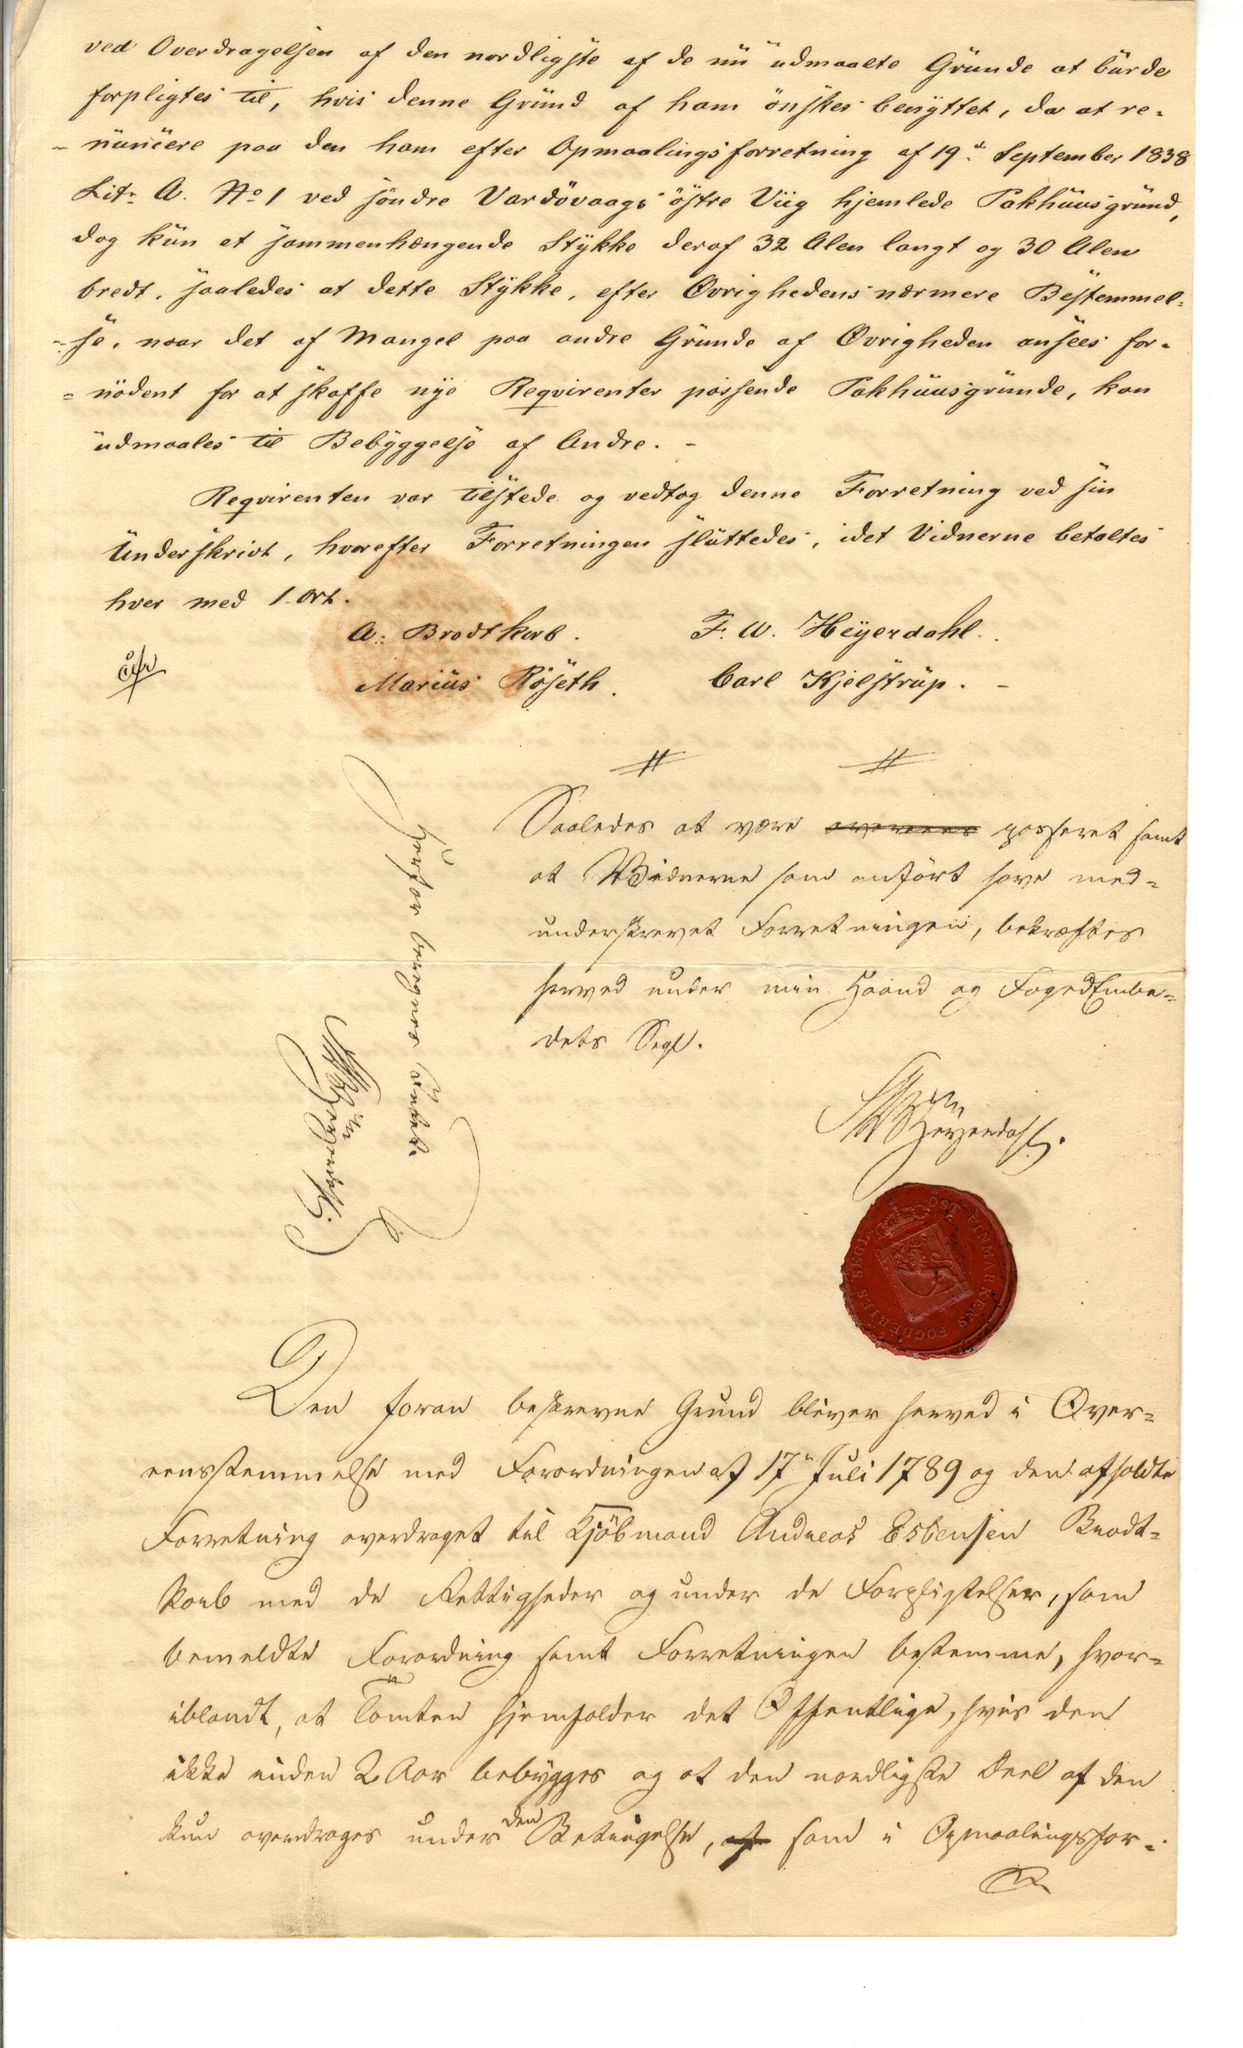 ved Overdragelsen af den nordligste af de nu udmaalte Grunde at burde
forpligtes til, hvis denne Grund af ham önskes benyttet, da at re-
- nuncere paa den ham efter Opmaalingsforretning af 19d. September 1838
Litr. A. No 1 ved söndre Vardövaags östre Viig hjemlede Pakhuusgrund,
dog kun et sammenhængende Stykke deraf 32 Alen langt og 30 Alen
bredt, saaledes at dette Stykke, efter Øvrighedens nærmere Bestemmel-
- se, naar det af Mangel paa andre Grunde af Øvrigheden ansees for-
= nödent for at skaffe nye Reqvirenter passende Pakhuusgrunde, kan
udmaales til Bebyggelse af Andre. -
Reqvirenten var tilstede og vedtog denne Forretning ved sin
Underskrivt, hvorefter Forretningen sluttedes, idet Vidnerne betaltes
hver med 1 Ort.
A: Brodtkorb. F. W. Heyerdahl.
Marius Röseth. Carl Kjelstrup. -
Saaledes at være passeret samt
at Vidnerne som anfört have med-
underskrevet Forretningen, bekræftes
herved under min Haand og FogedEmbe-
dets Segl.
FWHeyerdahl.
ÖST FINMARKENS FOGDERIES SEGL
Herfor beregnes Intet.
FWHeyerdahl
Den foran beskrevne Grund bliver herved i Over-
eensstemmelse med Forordningen af 17de Juli 1789 og den afholdte
Forretning overdraget til Kjöbmand Andreas Esbensen Brodt-
korb med de Rettigheder og under de Forpligtelser, som
bemeldte Forordning samt Forretningen bestemme, hvor-
iblandt, at Tomten hjemfalder det Offentlige, hvis den
ikke inden 2 Aar bebygges og at den nordligste Deel af den
kun overdrages under den Betingelse, at som i Opmaalingsfor-